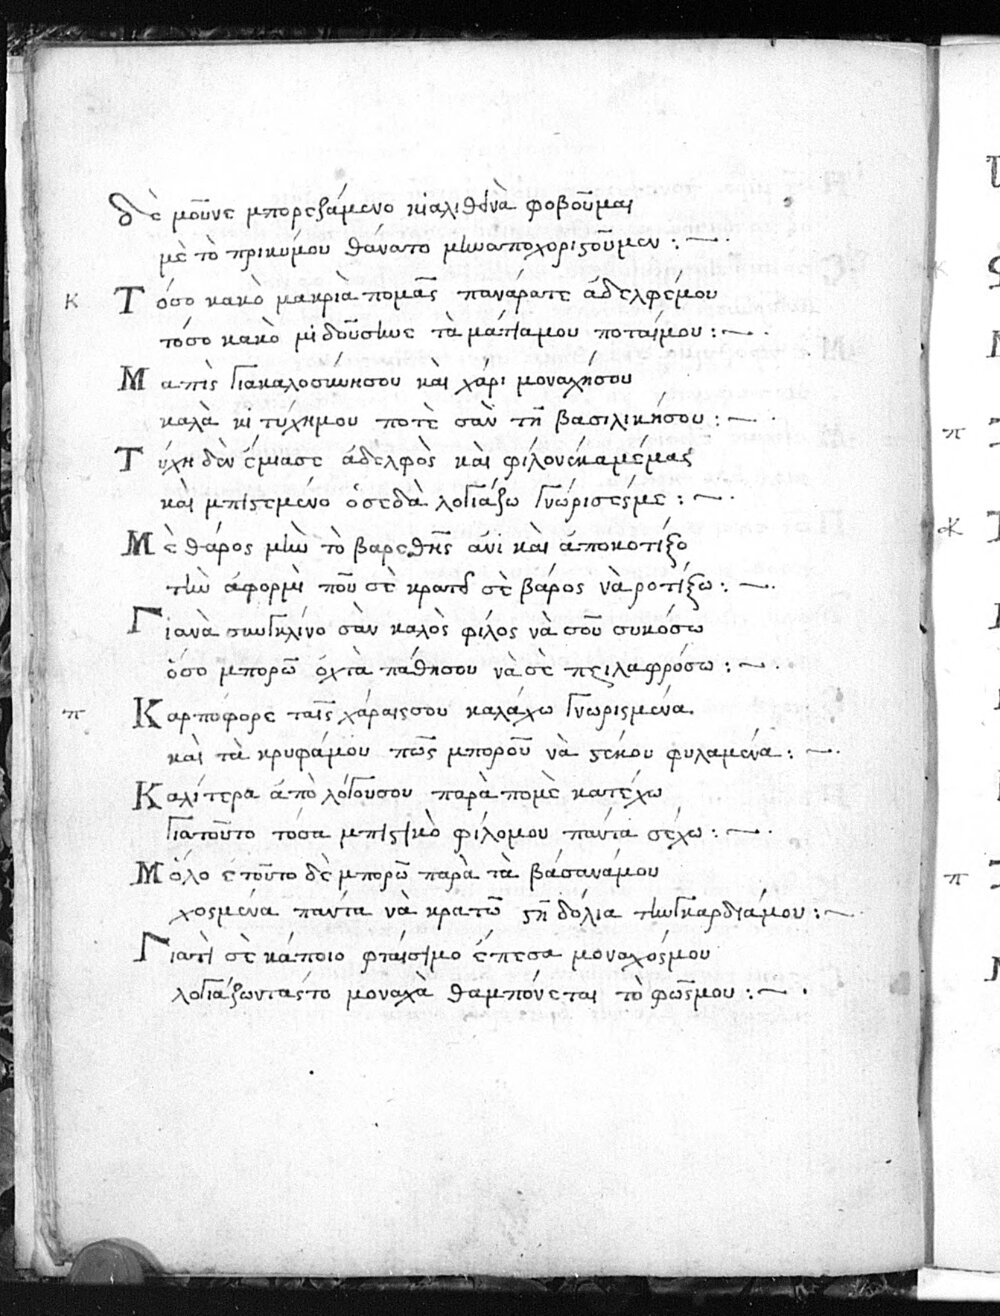 δὲ μοῦνε μπορεζάμενο κιαλιθινὰ φοβοῦμαι
μὲ τὸ πρικύμου θανατο μὴν ἀποχοριστοῦμεν : —
Κ Τόσο κακὸ μακρια πομᾶς παναρατε ἀδελφέμου
τόσο κακὸ μὶ δοῦσιν τὰ μάτια μου ποταίμου : — .
Μα πὶς Γιακαλοσκύνησου καὶ χάρι μοναχήσου
καλὰ κι τύχημου ποτὲ σὰν τῆ βασιλικησου : — .
Τύχη δὲν ἔμιασε ἀδελφὸς καὶ φίλον ἔκαμε μας
καὶ μπιστεμένο ὁσεδὰ λογιάζω Γνώρισεςμε : — .
Μὲ θάρος μὴν τὸ βαρεθῆς ἀνὶ καὶ ἀποκοτίξο
τὴν ἀφορμὶ ποῦ σὲ κρατεῖ σὲ βάρος νὰ ροτίξω : — .
Γιανὰ συνγκλίνο σὰν καλὸς φίλος νὰ σοῦ συκόσω
ὅσο μπορῶ ὀχτὰ πάθησου νὰ σὲ πςιλαφρόσω : — .
π Καρπόφορε ταῖς χάραις σου καλάχω Γνωρισμένα.
καὶ τὰ κρυφάμου πῶς μποροῦ νὰ στέκου φυλαμένα : — .
Καλίτερα ἀπὸ λόγουσου παρὰ πομὲ κατέχω
Γιατοῦτο τόσα μπιστικὸ φίλομου πάντα σέχω : — .
Μόλο ἐτοῦτο δὲ μπορῶ παρὰ τὰ βάσανάμου
χοσμένα πάντα νὰ κρατῶ στῆ δόλια τὴν Γκαρδιάμου : —
Γιατὶ σὲ κάποιο φταίσιμο ἔπεσα μοναχόςμου
λογιάζωντας το μοναχὰ θαμπόνεται τὸ φῶςμου : — .